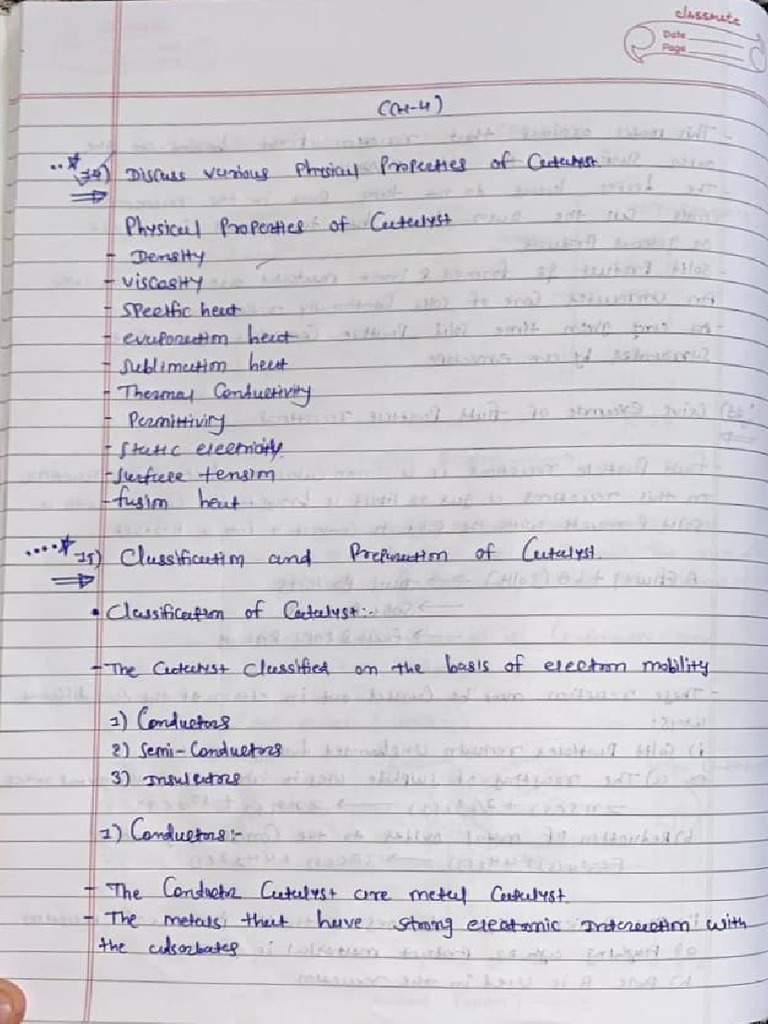 classmate
Date
Page
CH-4)
34) Discuss various Physical Properties of Catalyst.
Physical Properties of Catalyst
- Density
- viscasity
- specific heat
- evaporation heat
- sublimation heat
- Thermal Conductivity
- Permittivity
- static electricity.
- surface tension
- fusion heat
35) Classification and Preparation of Catalyst.
• Classification of Catalyst:-
- The Catalyst Classified on the basis of electron mobility
1) Conductors
2) Semi-Conductors
3) Insulators
1) Conductors:-
- The Conductor Catalyst are metal Catalyst.
- The metals that have strong electronic Interaction with
the adsorbates